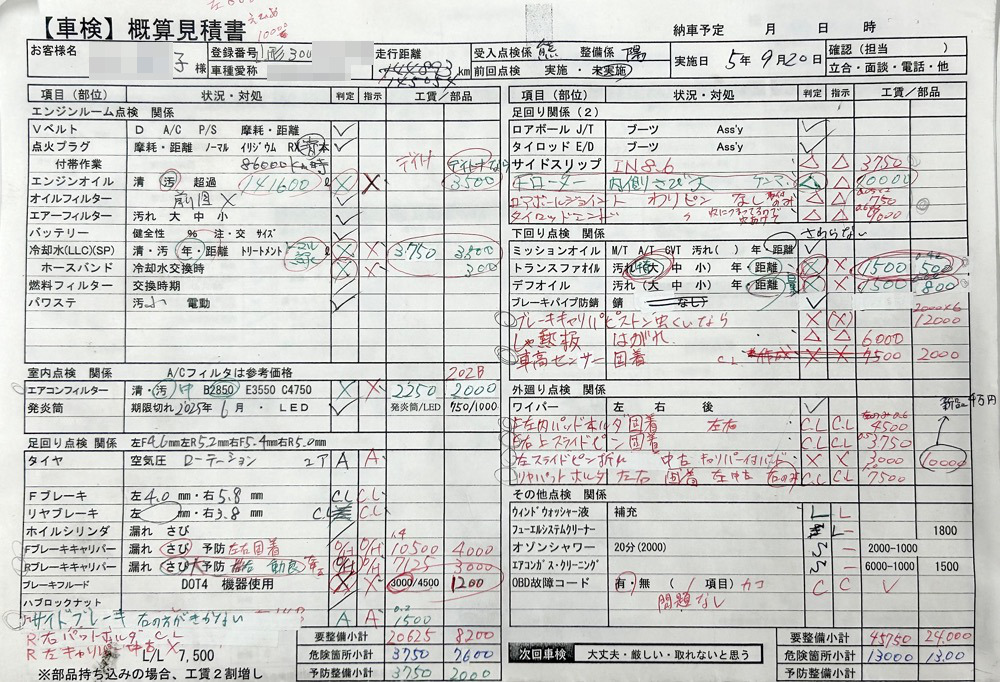 【車検】概算見積書
納車予定 月 日 時
お客様名 子 様
登録番号 彫 300
車種愛称
走行距離 144893 km 145054
受入点検係 熊 整備係 陽
前回点検 実施・未実施
実施日 5年9月20日
確認(担当 )
立合・面談・電話・他
項目(部位) 状況・対処 判定 指示 工賃/部品
エンジンルーム点検 関係
Vベルト D A/C P/S 摩耗・距離
点火プラグ 摩耗・距離 ノーマル イリジウム
付帯作業 86000km時
エンジンオイル 清 汚 超過 141600 ℓ × × 3500
オイルフィルター 前回 ×
エアーフィルター 汚れ 大 中 小
バッテリー 健全性 96 注・交 サイズ
冷却水(LLC)(SP) 清・汚 年・距離 トリートメント × × 3750 3800
ホースバンド 冷却水交換時 × × 300
燃料フィルター 交換時期
パワステ 汚 小 電動
室内点検 関係 A/Cフィルタは参考価格 202B
エアコンフィルター 清・汚 中 B2850 E3550 C4750 × × 2250 2000
発炎筒 期限切れ 2025年 6月 ・ LED 発炎筒/LED 750/1000
足回り点検 関係 左F4.6mm左R5.2mm右F5.4mm右R5.0mm
タイヤ 空気圧 ローテーション エア A A
Fブレーキ 左 4.0 mm・右 5.8 mm C.L C.L
リヤブレーキ 左 mm・右 3.8 mm C.L C.L
ホイルシリンダ 漏れ さび
Fブレーキキャリパー 漏れ さび 予防 左右固着 O/H O/H 10500 4000
Rブレーキキャリパー 漏れ さび大 予防 O/H O/H 7125 3000
ブレーキフルード DOT4 機器使用 × × 3000/4500 1200
ハブロックナット
サイドブレーキ 右の方がきかない A A 1500
R右パットホルダ C L
R左キャリパー中古 ×
L/L 7,500
※部品持ち込みの場合、工賃2割増し
要整備小計 20625 8200
危険箇所小計 3750 7600
予防整備小計 3750 2000
項目(部位) 状況・対処 判定 指示 工賃/部品
足回り関係(2)
ロアボールJ/T ブーツ Ass'y
タイロッドE/D ブーツ Ass'y
サイドスリップ IN8.6 △ △ 3750
Fローター 内側さび大 ケンマ △ △ 10000
ロアボールジョイント わりピン なし △ △ 750
タイロッドエンド △ △ 4000
下回り点検 関係 さわらない
ミッションオイル M/T A/T CVT 汚れ( ) 年・距離
トランスファオイル 汚れ(大 中 小) 年・距離 × × 1500 500
デフオイル 汚れ(大 中 小) 年・距離 × × 1500 800
ブレーキパイプ防錆 錆 なし
2000×6
ブレーキキャリパピストン虫くいなら × (×) 12000
しゃ熱板 はがれ △ △ 6000
車高センサー 固着 C L × × 4500 2000
外廻り点検 関係
新品 4万円
ワイパー 左 右 後
F左内パッドホルダ固着 左右 C.L C.L 4500
F右上スライドピン固着 C.L C.L 3750
左スライドピン折れ 中古キャリパー付バンド × × 3000 10000
リヤパットホルダ 左右 固着 左中古 右のみ C.L C.L 7500
その他点検 関係
ウィンドウォッシャー液 補充 L L
フューエルシステムクリーナー L 1800
オゾンシャワー 20分(2000) 2000-1000
エアコンガス・クリーニング 6000-1000 1500
OBD故障コード 有・無 ( 1 項目) カコ C C
問題なし
次回車検 大丈夫・厳しい・取れないと思う
要整備小計 45750 24,000
危険箇所小計 13000 1300
予防整備小計